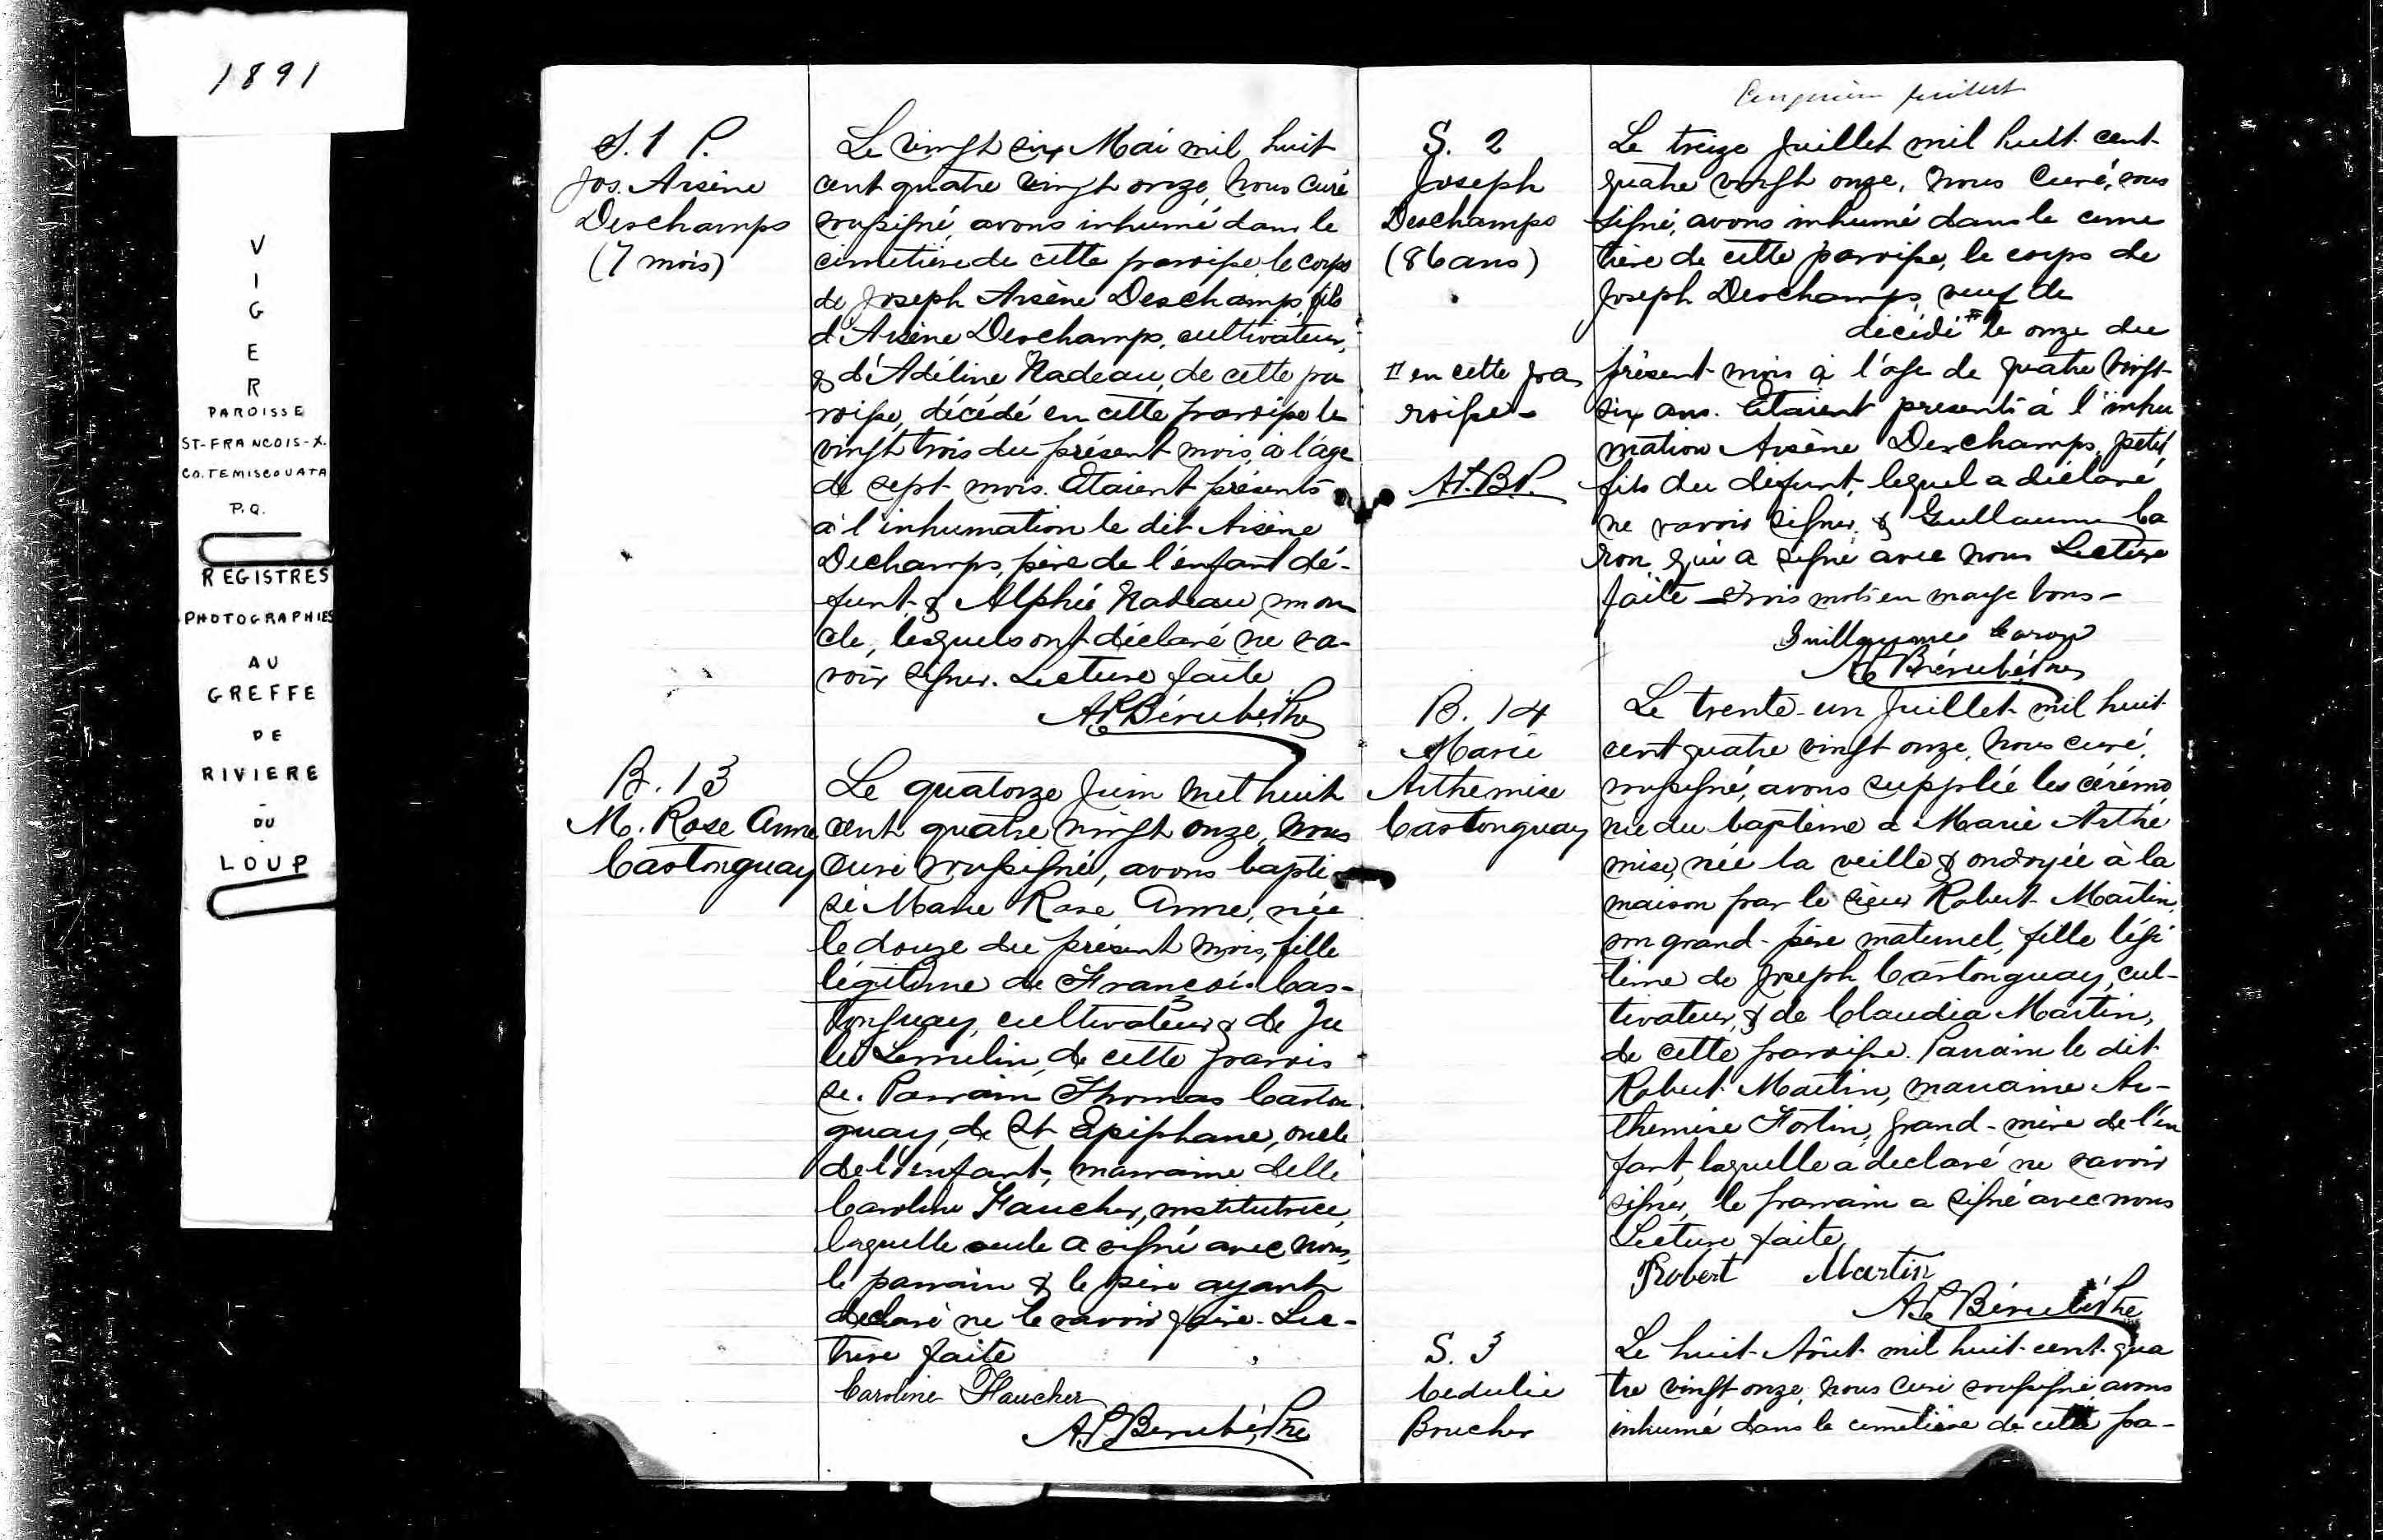 1891
V
I
G
E
R
PAROISSE
ST-FRANCOIS-X.
CO. TEMISCOUATA
P.Q.
REGISTRES
PHOTOGRAPHIES
AU
GREFFE
DE
RIVIERE
-
DU
-
LOUP
S. 1 P.
Jos. Arsène
Deschamps
(7 mois)
Le vingt six Mai mil huit
cent quatre vingt onze, nous curé
soussigné, avons inhumé dans le
cimetière de cette paroisse, le corps
de Joseph Arsène Deschamps, fils
d'Arsène Deschamps, cultivateur,
& d'Adéline Nadeau, de cette pa
roisse, décédé en cette paroisse le
vingt trois du présent mois, à l'âge
de sept mois. Etaient présents
à l'inhumation le dit Arsène
Dechamps, père de l'enfant dé-
funt & Alphée Nadeau, son on
cle, lesquels ont déclaré ne sa-
voir signer. Lecture faite
A.P. Bérubé, Ptre
B. 13
M. Rose Anne
Castonguay
Le quatorze Juin mil huit
cent quatre vingt onze, nous
curé soussigné, avons bapti
sé Marie Rose Anne, née
le douze du présent mois, fille
légitime de François Cas-
tonguay, cultivateur & de Ju
lie Lemelin, de cette parois
se. Parrain Thomas Caston
guay, de St Epiphane, oncle
de l'enfant, marraine delle
Caroline Faucher, institutrice,
laquelle seule a signé avec nous,
le parrain & le père ayant
déclaré ne le savoir faire. Lec-
ture faite
Caroline Faucher
A.P. Bérubé, Ptre
juillet
S. 2
Joseph
Deschamps
(86 ans)
# en cette pa
roisse -
A.P.B.P.
Le treize Juillet mil huit cent
quatre vingt onze, nous Curé, sous
signé, avons inhumé dans le cime
tière de cette paroisse, le corps de
Joseph Deschamps, veuf de
décédé # le onze du
présent mois à l'age de quatre vingt
six ans. Etaient présents à l'inhu
mation Arsène Deschamps, petit
fils du défunt, lequel a déclaré
ne savoir signer, & Guillaume Ca
ron qui a signé avec nous Lecture
faite - trois mots en marge bons -
Guillaume Caron
A.P. Bérubé, Ptre
B. 14
Marie
Arthemise
Castonguay
Le trente-un Juillet mil huit
cent quatre vingt onze, nous curé,
soussigné, avons suppléé les cérémo
nie du baptême à Marie Arthé
mise, née la veille & ondoyée à la
maison par le sieur Robert Martin,
son grand-père maternel, fille légi
time de Joseph Castonguay, cul-
tivateur, & de Claudia Martin,
de cette paroisse. Parrain le dit
Robert Martin, marraine Ar-
themise Fortin, grand-mère de l'en
fant, laquelle a declaré ne savoir
signer, le parrain a signé avec nous
Lecture faite
Robert Martin
A.P. Bérubé, Ptre
S. 3
Cedulie
Boucher
Le huit Août mil huit cent qua
tre vingt onze, nous Curé soussigné avons
inhumé dans le cimetière de cette pa-